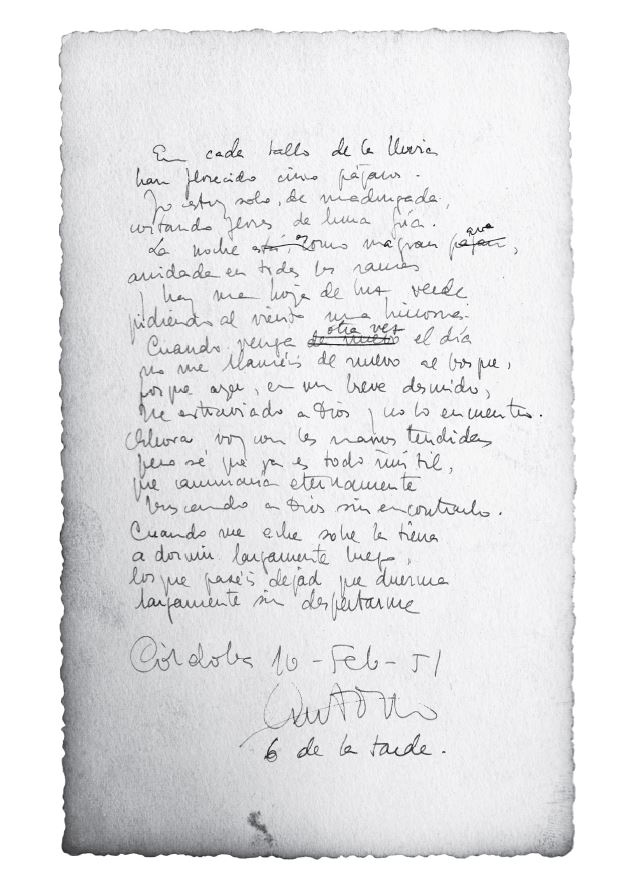 En cada tallo de la lluvia
han florecido cinco pájaros.
Yo estoy solo, de madrugada,
cortando flores de luna fría.
La noche está, como una gran pájaro,
grua
anidada en todas las ramas
y hay una hoja de luz verde
pidiendo al viento una
otra vez
Cuando venga de nuevo el día
no me llaméis de nuevo al bosque,
porque ayer, en un breve descuido,
he extraviado a Dios y no lo encuentro.
Ahora voy con las manos tendidas
pero sé que ya es todo inútil,
que caminaría eternamente
buscando a Dios sin encontrarlo.
Cuando me eche sobre la tierra
a dormir largamente luego,
los que paséis dejad que duerma
largamente sin despertarme
Córdoba 10-Feb-51
Antonio
6 de la tarde.